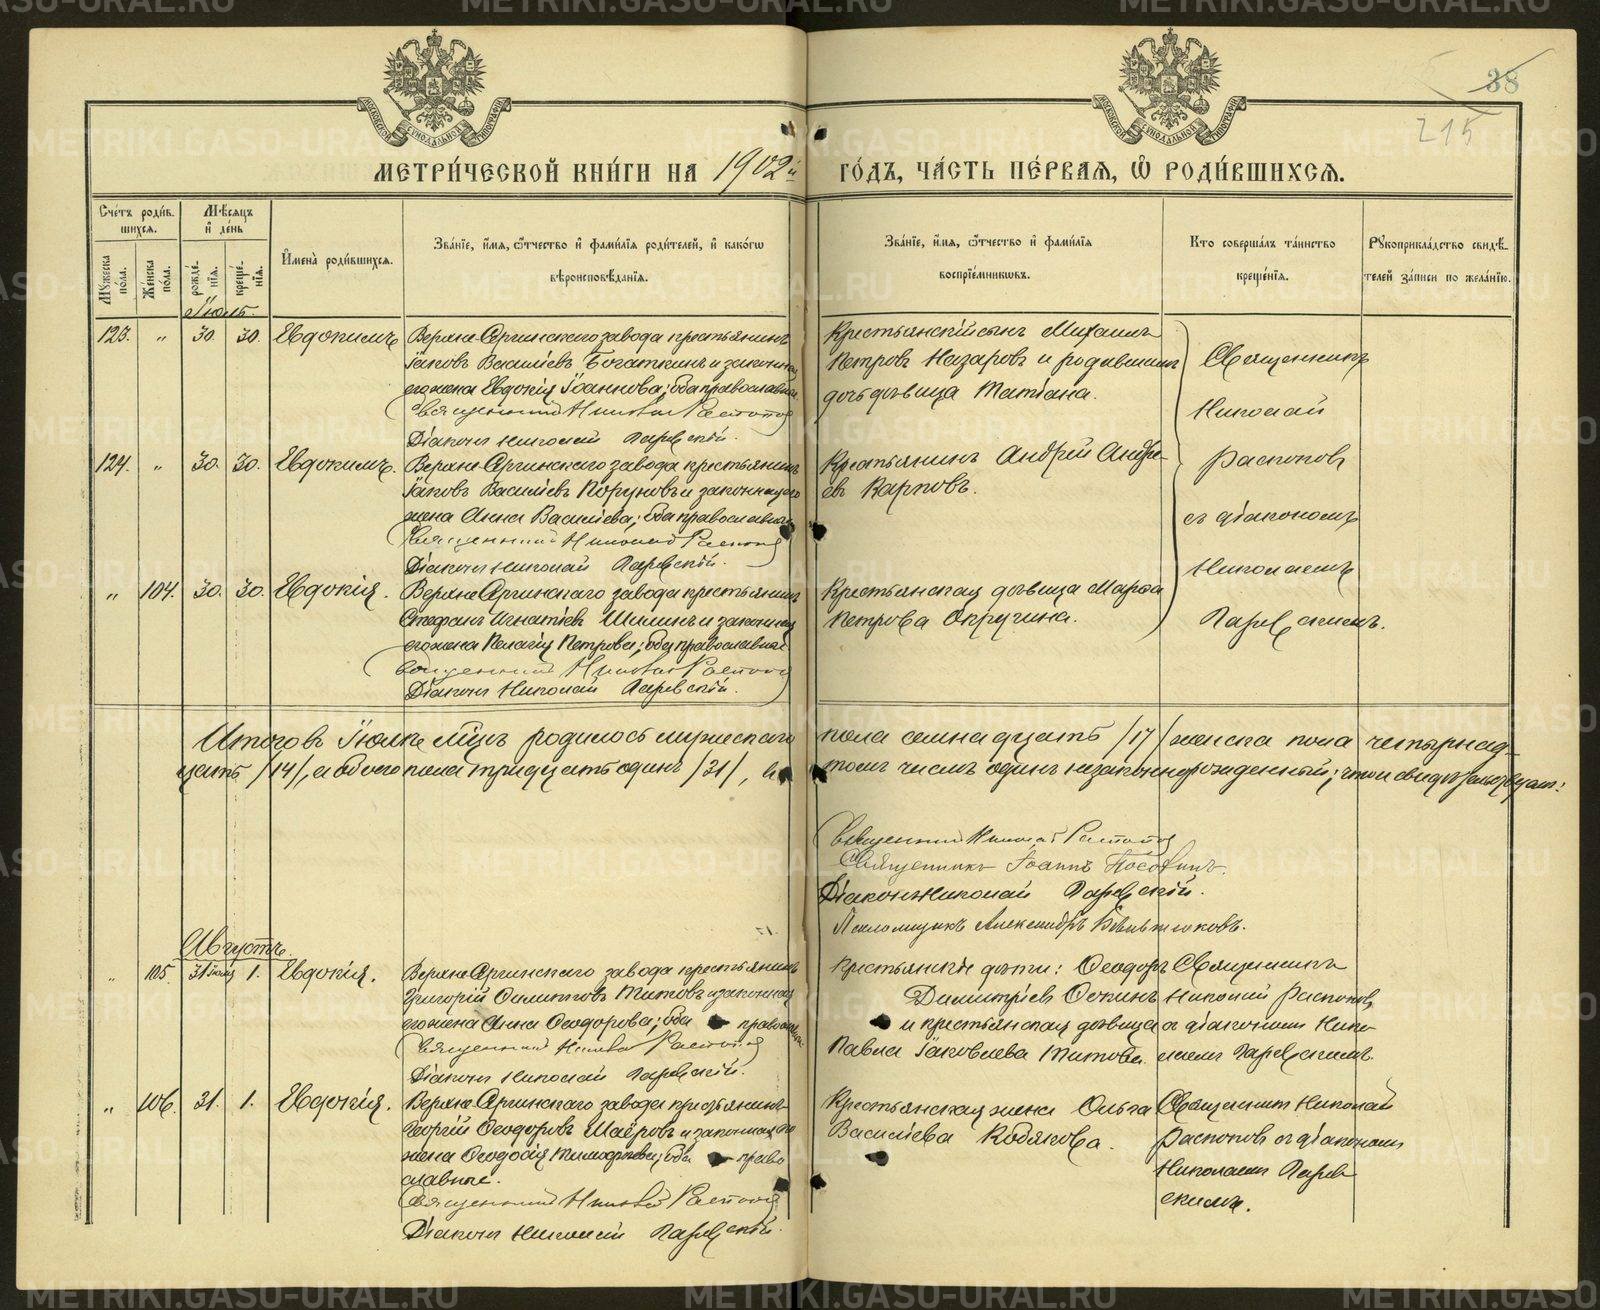 38
215
МЕТРИ́ЧЕСКОЙ КНИ́ГИ НА 1902й ГО́ДЪ, ЧА́СТЬ ПЕ́РВАЯ, Ѿ РОДИ́ВШИХСЯ.
Сче́тъ роди́вшихся.
Мѣ́сяцъ и́ де́нь
Мꙋ́жеска по́ла.
Же́нска по́ла.
рожде́нїя.
креще́нїя.
И҆мена̀ роди́вшихся.
Зва́нїе, и҆́мя, ѻ҆́тчество и҆ фами́лїя роди́телей, и҆ како́гѡ
вѣроисповѣ́данїя.
Зва́нїе, и҆́мя, ѻ҆́тчество и҆ фами́лїя
воспрїе́мниковъ.
Кто соверша́лъ та́инство
креще́нїя.
Рꙋкоприкла́дство свидѣ́телей за́писи по жела́нїю.
Іюль.
123. " 30. 30. Евдокимъ
Верхне Сергинскаго завода крестьянинъ
Іаковъ Василіевъ Богаткинъ и законная
его жена Евдокія Іоаннова; оба православные
Священникъ Николай Распоповъ
Діаконъ Николай
Крестьянскій сынъ Михаилъ
Петровъ Назаровъ и родившихъ
дочь дѣвица Татіана.
Священникъ
Николай
Распоповъ
съ діакономъ
Николаемъ
124. " 30. 30. Евдокимъ.
Верхне Сергинскаго завода крестьянинъ
Іаковъ Василіевъ и законная его
жена Анна Василіева; оба православные
Священникъ Николай Распоповъ
Діаконъ Николай
Крестьянинъ Андрей Андре-
евъ Карповъ.
" 104. 30. 30. Евдокія.
Верхне Сергинскаго завода крестьянинъ
Стефанъ Игнатіевъ Шилинъ и законная
его жена Пелагія Петрова; оба православные
Священникъ Николай Распоповъ
Діаконъ Николай
Крестьянская дѣвица Марѳа
Петрова
Итого въ Іюлѣ мцѣ родилось мужескаго пола семнадцать /17/ женска пола четырнад-
цать /14/, а обоего пола тридцать одинъ /31/, въ томъ числѣ одинъ незаконнорожденный; что и свидѣтельствуемъ:
Священникъ Николай Распоповъ
Священникъ Іоаннъ
Діаконъ Николай
Псаломщикъ Александръ
Августъ.
" 105. 31 Іюля 1. Евдокія.
Верхне Сергинскаго завода крестьянинъ
Григорій Филипповъ Титовъ и законная
его жена Анна Ѳеодорова; оба православные
Священникъ Николай Распоповъ
Діаконъ Николай
Крестьянскіе дѣти: Ѳеодоръ
Димитріевъ
и крестьянская дѣвица
Павла Іаковлева Титова.
Священникъ
Николай Распоповъ
съ діакономъ Нико-
лаемъ
" 106. 31. 1. Евдокія.
Верхне Сергинскаго завода крестьянинъ
Георгій Ѳеодоровъ и законная его
жена Ѳеодосія Тимоѳеева; оба право
славные.
Священникъ Николай Распоповъ
Діаконъ Николай
Крестьянская жена Ольга
Василіева Кобякова.
Священникъ Николай
Распоповъ съ діакономъ
Николаемъ
METRIKI.GASO-URAL.RU